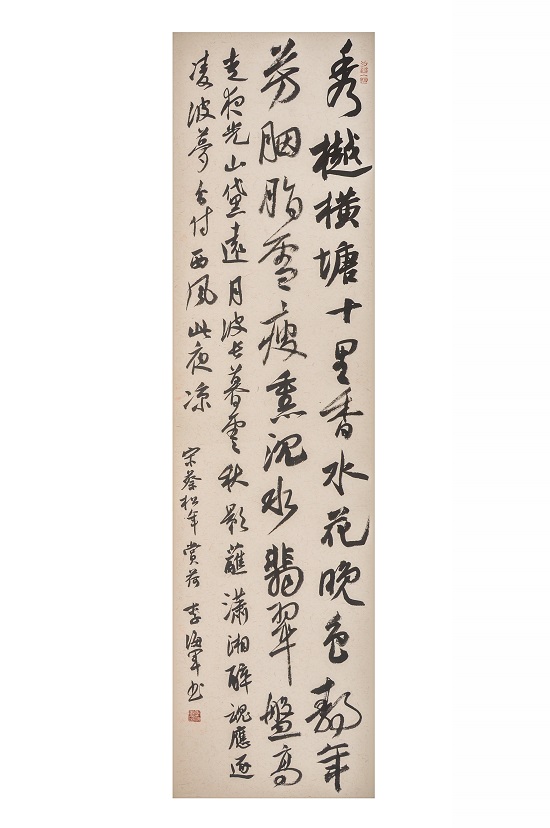 秀樾橫塘十里香水花晚色靜年
芳胭脂雪瘦熏沉水翡翠盤高
走夜光山黛遠月波长暮雲秋影蘸瀟湘醉魂應逐
凌波夢分付西風此夜凉
宋蔡松年賞荷 李海军书